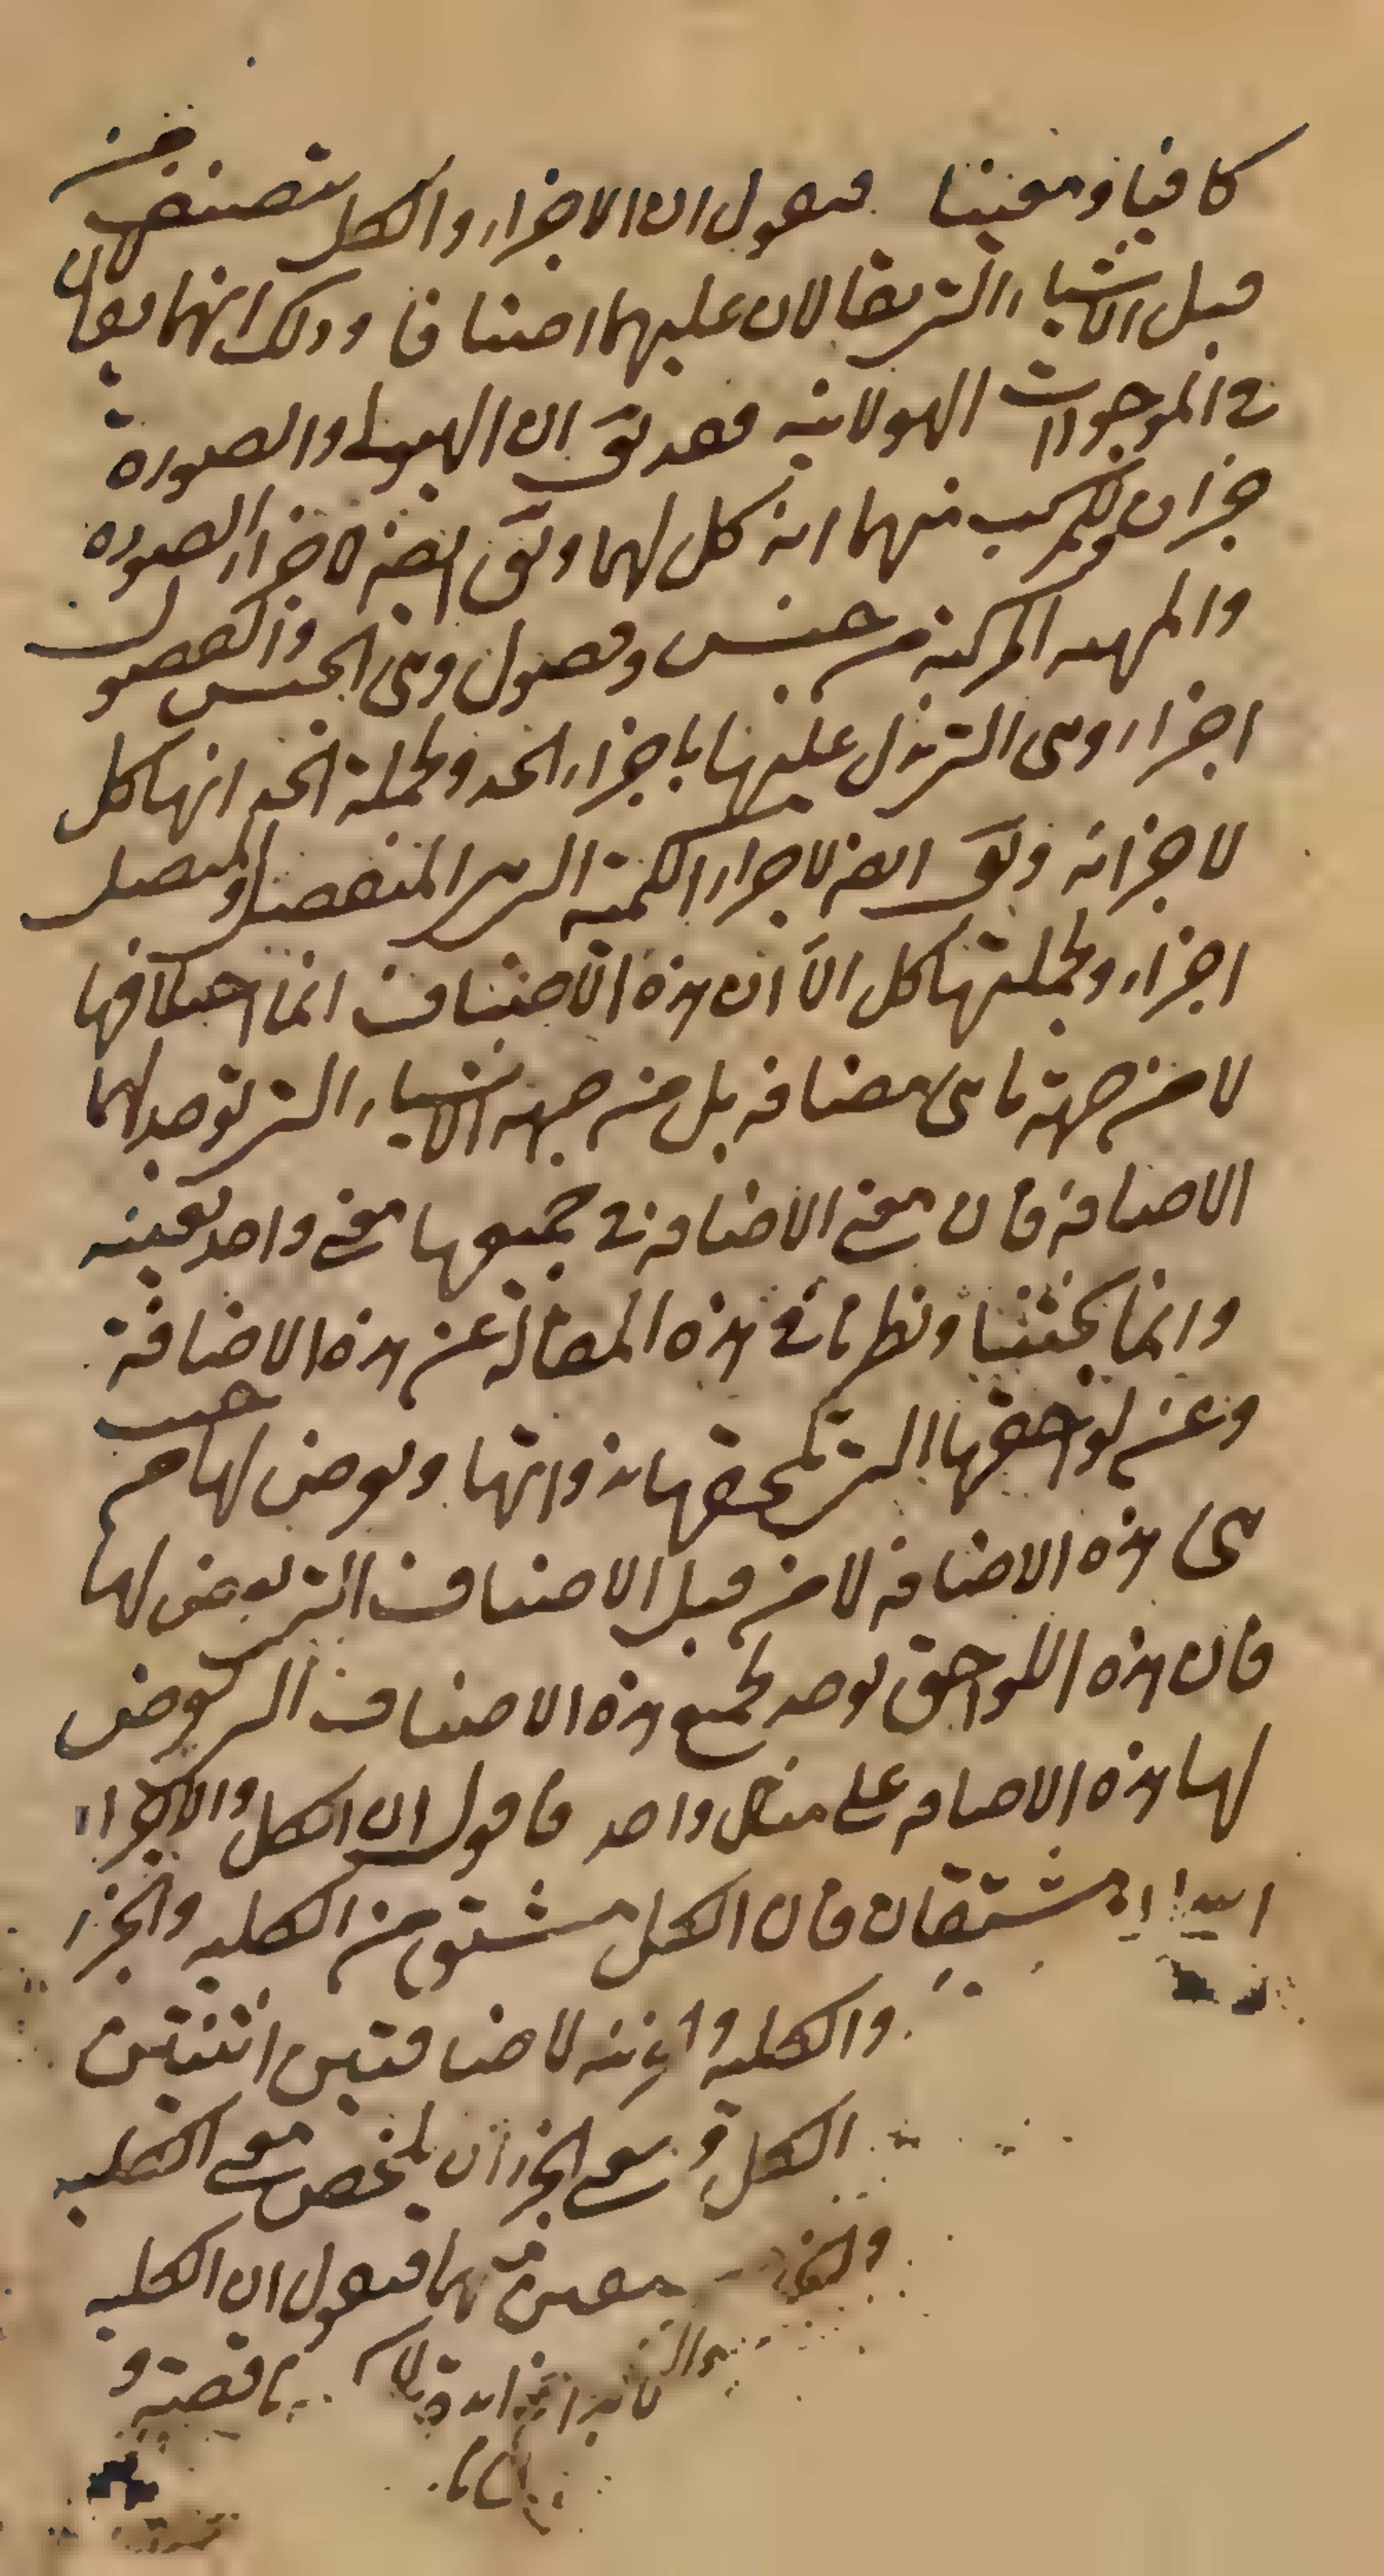 كافيا ومغنيا فنقول ان الاجزاء والكل يتصنف من
قبل الاشياء التى يقالان عليهما اصنافا وذلك انهما يقالان
فى الموجودات الهيولانيه فقد يق ان الهيولى والصورة
جزان وللمركب منهما انه كل لهما ويق ايضا لاجزاء الصوره
والمهيه المركبة من جنس وفصول وهى الجنس والفصول
اجزاء وهى التى يدل عليها باجزاء الحد ولجملة الحد انها كل
لاجزائه ويق ايضا لاجزاء الكمية التى هى المنفصل والمتصل
اجزاء ولجملتها كل الا ان هذه الاصناف انما اختلافها
لا من جهة ما هى مضافه بل من جهه الاشياء التى توجد لهما
الاضافه فان معنى الاضافه فى جميعها معنى واحد بعينه
وانما بحثنا ونظرنا فى هذه المقالة عن هذه الاضافة
وعن لواحقها التى تلحقها بذواتها ويعرض لها من حيث
هى هذه الاضافه لا من قبل الاصناف التى يعرض لها
فان هذه اللواحق توجد لجميع هذه الاصناف التى تعرض
لها هذه الاضافه على مثال واحد فاقول ان الكل والاجزاء
مشتقان فان الكل مشتق من الكليه والجزء
والكليه لاضافتين اثنتين
الكل و معنى الجزء ان يلخص معنى الكليه
فنقول ان الكليه
ناقصة و